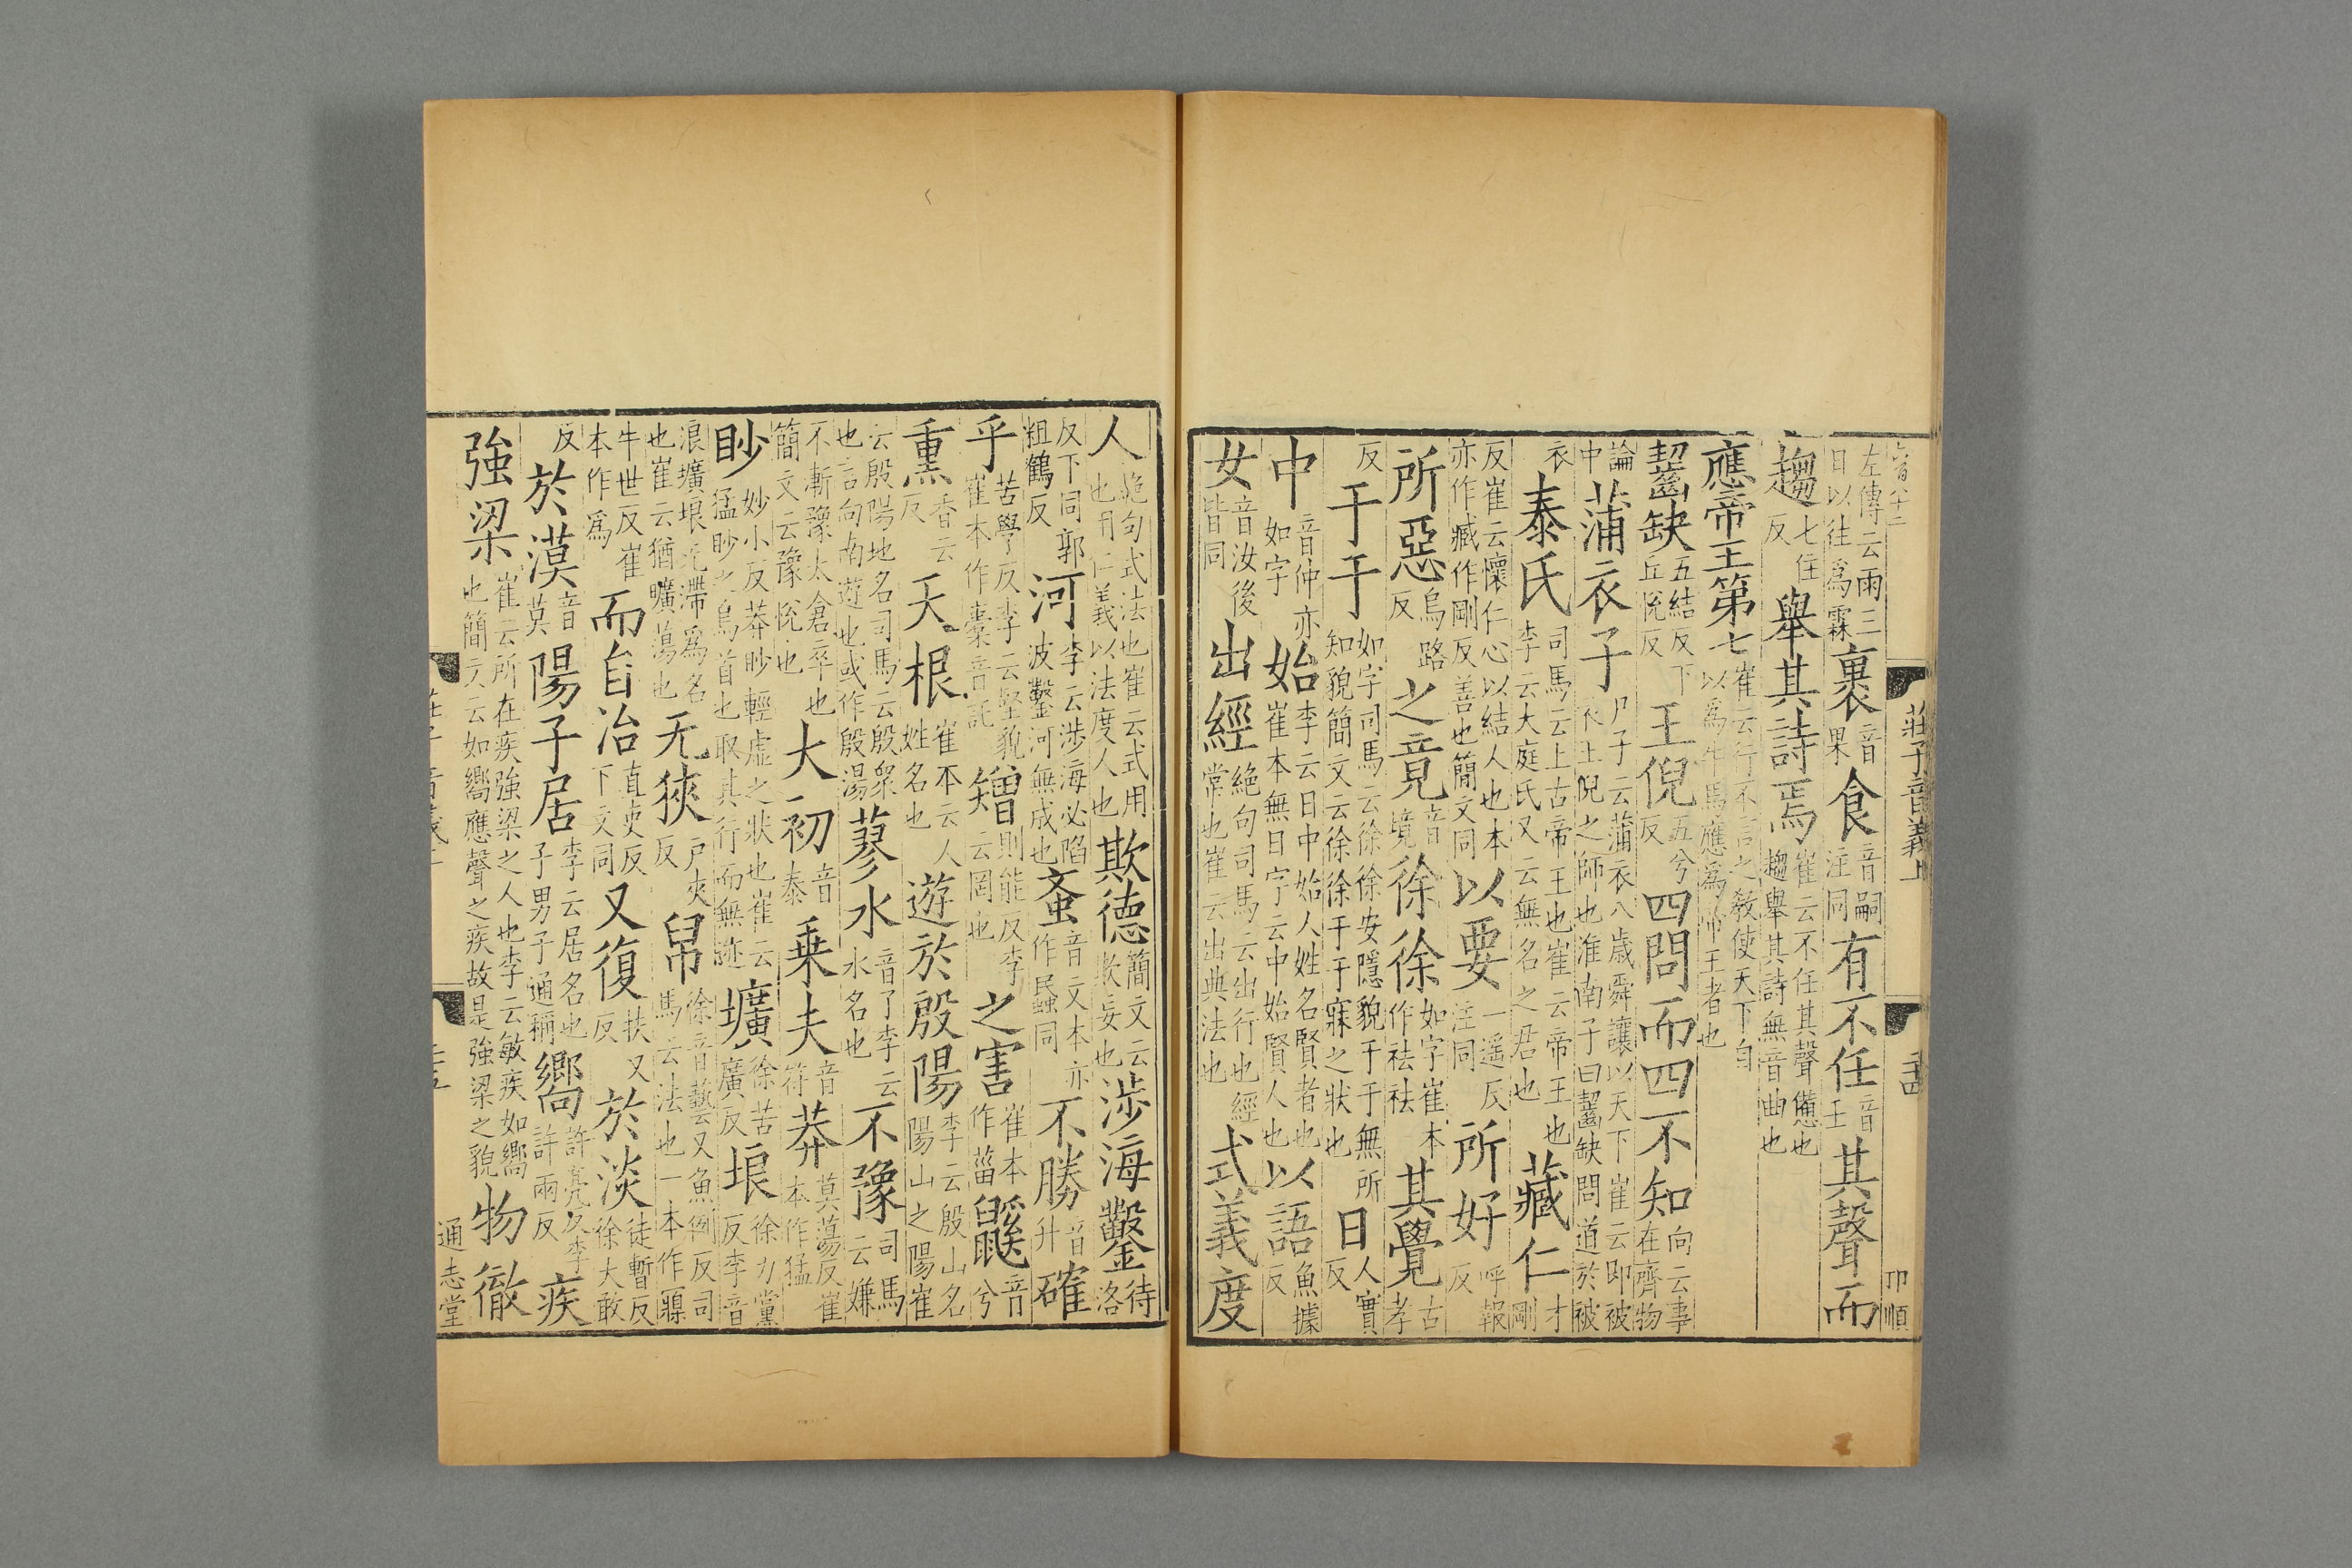 莊子音義上
印順
左傳云雨三日以往爲霖 裹音果 食音嗣注同 有不任音壬 其聲而
趨七住反 舉其詩焉崔云不任其聲憊也趨舉其詩無音曲也
應帝王第七崔云行不言之教使天下自以爲牛馬應爲帝王者也
齧缺五結反下丘悅反 王倪五兮反 四問而四不知向云事在齊物
論中 蒲衣子尸子云蒲衣八歲舜讓以天下崔云即被衣王倪之師也淮南子曰齧缺問道於被
衣 泰氏司馬云上古帝王也崔云帝王也李云大庭氏又云無名之君也 藏仁才剛
反崔云懷仁心以結人也本亦作臧作剛反善也簡文同 以要一遥反注同 所好呼報反
所惡烏路反 之竟音境 徐徐如字崔本作袪袪 其覺古孝
反 于于如字司馬云徐徐安隱貌于于無所知貌簡文云徐徐于于寐之狀也 日人實反
中音仲亦如字 始李云日中始人姓名賢者也崔本無日字云中始賢人也 以語魚據反
女音汝後皆同 出經絕句司馬云出行也經常也崔云出典法也 式義度
人絕句式法也崔云式用也用仁義以法度人也 欺德簡文云欺妄也 涉海鑿待洛
反下同郭粗鶴反 河李云涉海必陷波鑿河無成也 蚉音文本亦作䖟同 不勝音升 確
乎苦學反李云堅貌崔本作橐音託 矰則能反李云罔也 之害崔本作菑 鼷音兮
熏香云反 天根崔本云人姓名也 遊於殷陽李云殷山名陽山之陽崔
云殷陽地名司馬云殷衆也言向南遊也或作殷湯 蓼水音了李云水名也 不豫司馬云嫌
不漸豫太倉卒也簡文云豫悅也 大初音泰 乗夫音符 莽莫蕩反崔本作猛
眇妙小反莽眇輕虛之狀也崔云猛眇之鳥首也取其行而無迹 壙徐苦廣反 埌徐力黨反李音
浪壙埌无滯爲名也崔云猶曠蕩也 无狹戸夾反 帠徐音藝又魚例反司馬云法也一本作㝱
牛世反崔本作爲 而自治直吏反下文同 又復扶又反 於淡徒暫反徐大敢
反 於漠音莫 陽子居李云居名也子男子通稱 嚮許亮反李許兩反 疾
強梁崔云所在疾強梁之人也李云敏疾如嚮也簡文云如嚮應聲之疾故是強梁之貌 物徹
通志堂